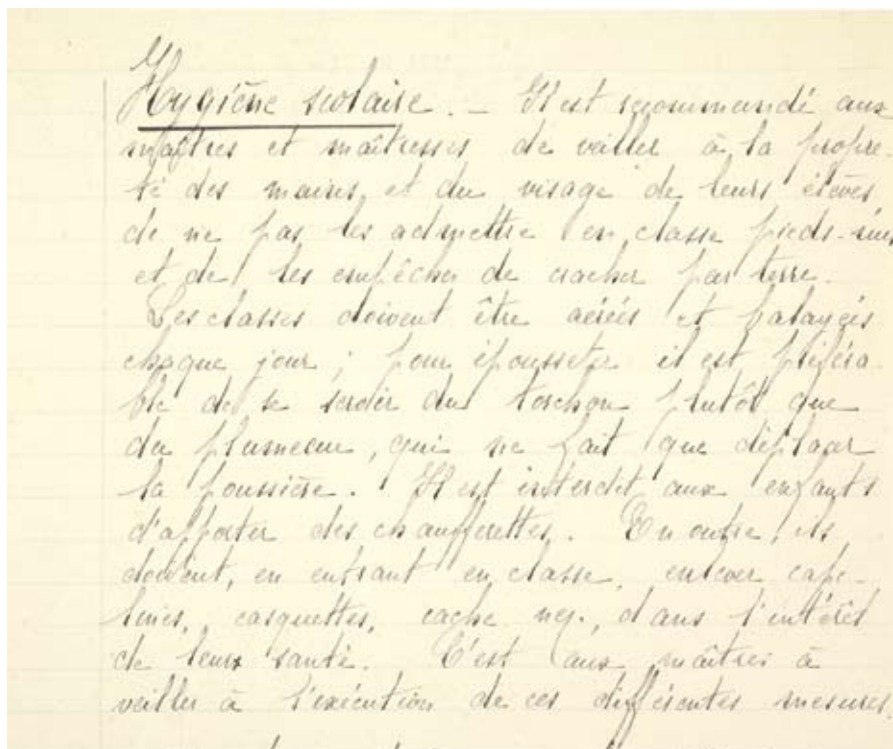 Hygiène scolaire. – Il est recommandé aux
maîtres et maîtresses de veiller à la propre-
té des mains et du visage de leurs élèves,
de ne pas les admettre en classe pieds-nus
et de les empêcher de cracher par terre.
Les classes doivent être aérées et balayées
chaque jour ; pour épousseter il est préféra-
ble de se servir du torchon plutôt que
du plumeau, qui ne fait que déplacer
la poussière. Il est interdit aux enfants
d'apporter des chaufferettes. En outre, ils
doivent, en entrant en classe, enlever cape-
lines, casquettes, cache nez, dans l'intérêt
de leur santé. C'est aux maîtres à
veiller à l'exécution de ces différentes mesures.